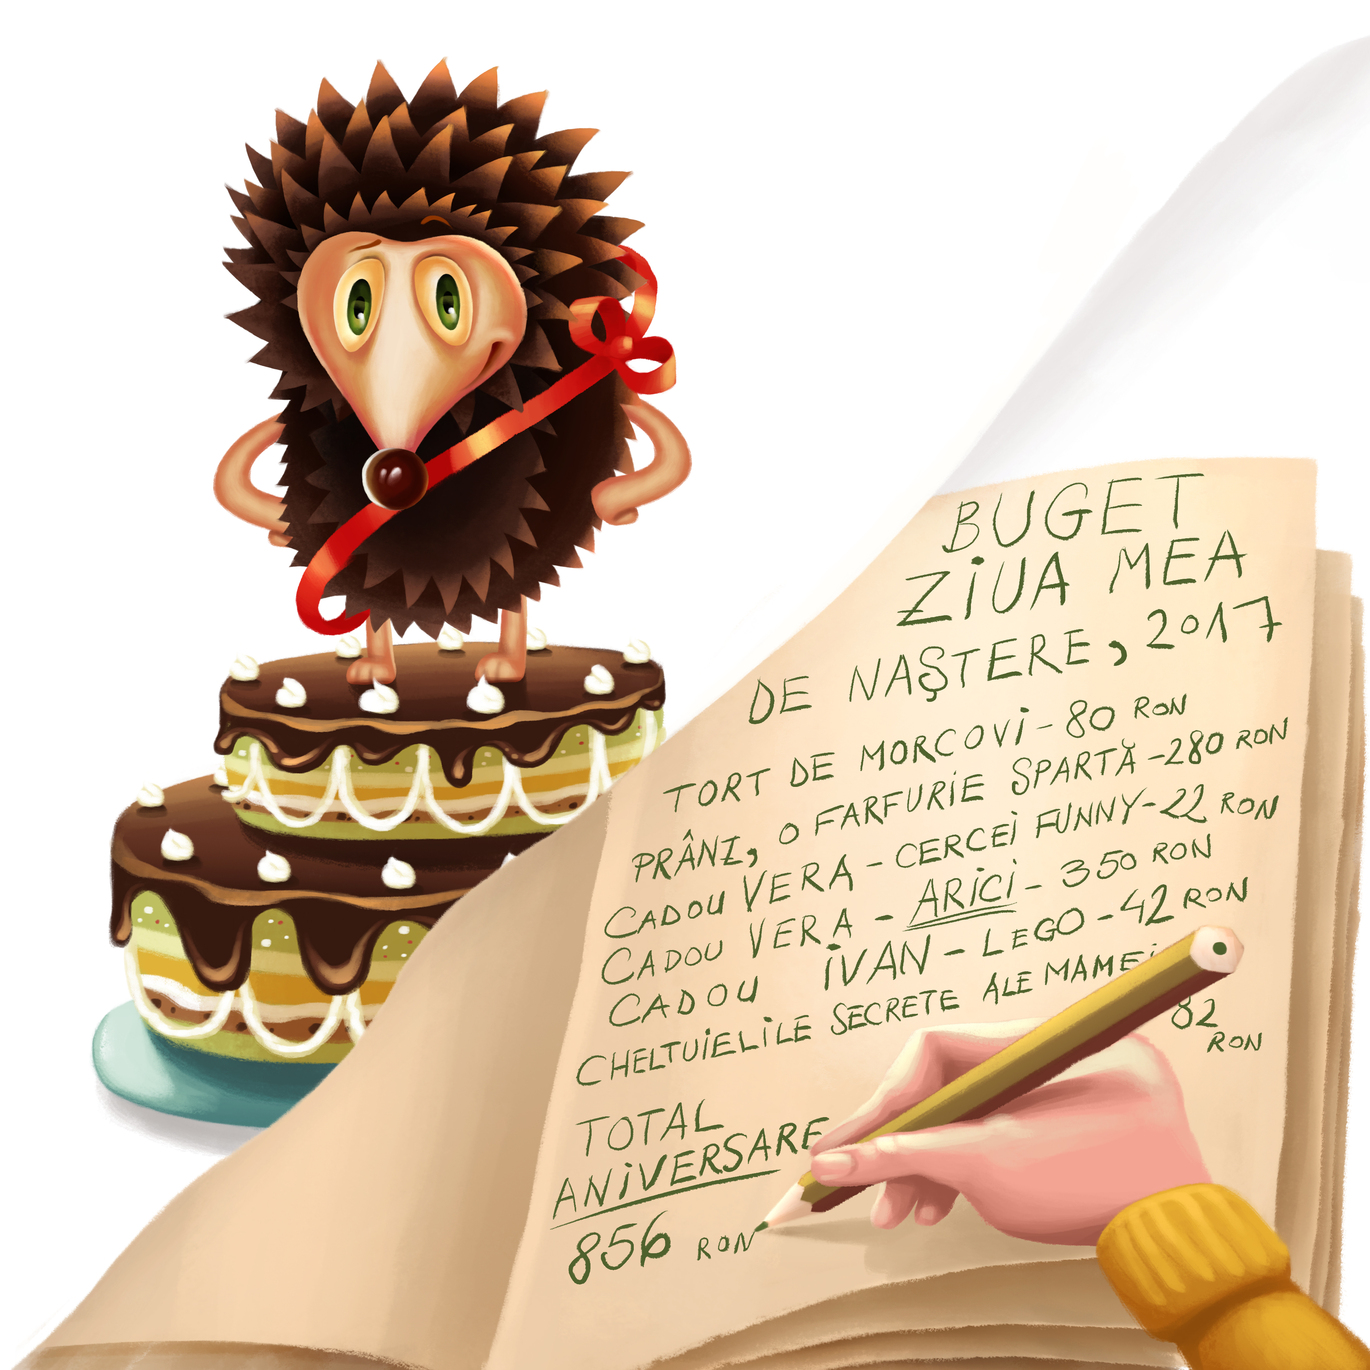 BUGET
ZiUA MEA
DE NAŞTERE, 2017
TORT DE MORCOVi - 80 RON
PRÂNZ, O FARFURiE SPARTĂ - 280 RON
CADOU VERA - CERCEi FUNNY - 22 RON
CADOU VERA - ARiCi - 350 RON
CADOU iVAN - LEGO - 42 RON
CHELTUiELiLE SECRETE ALE MAMEi
82
RON
TOTAL
ANiVERSARE
856 RON